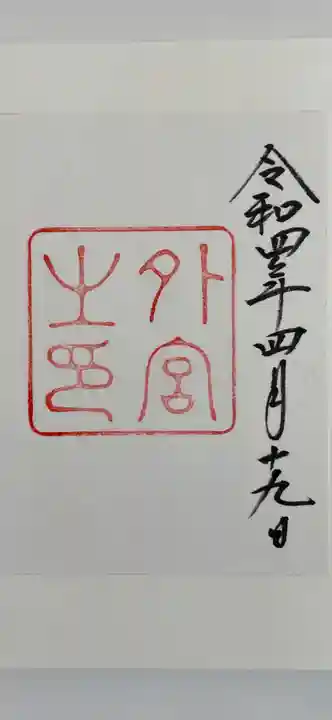 令和四年四月十九日
外宮
之印